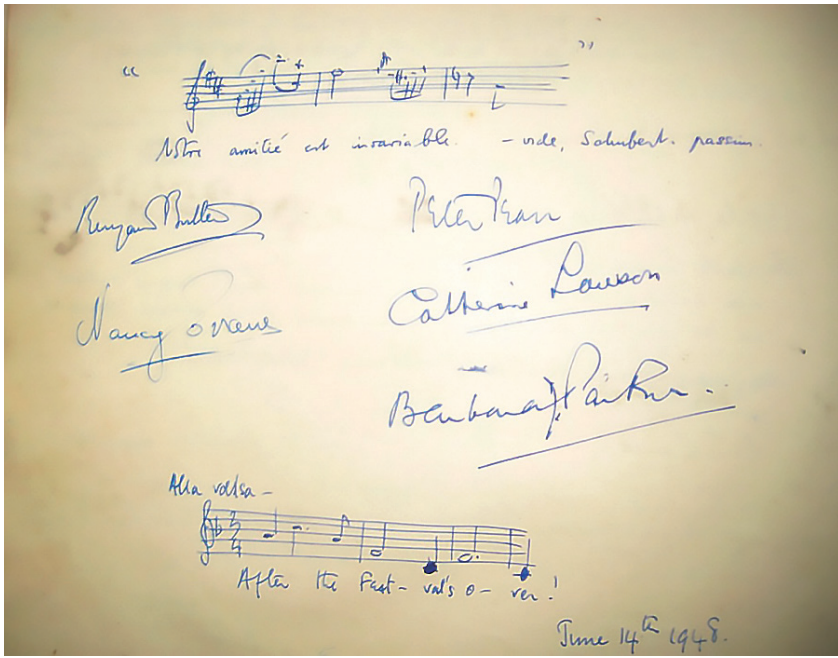 “ ”
Notre amitié est invariable. – vide, Schubert. passim.
Benjamin Britten
Peter Pears
Nancy Evans
Catherine Lawson
Barbara Parker.
Alla valsa –
3 4
After the Fest – val's o – ver!
June 14th 1948.